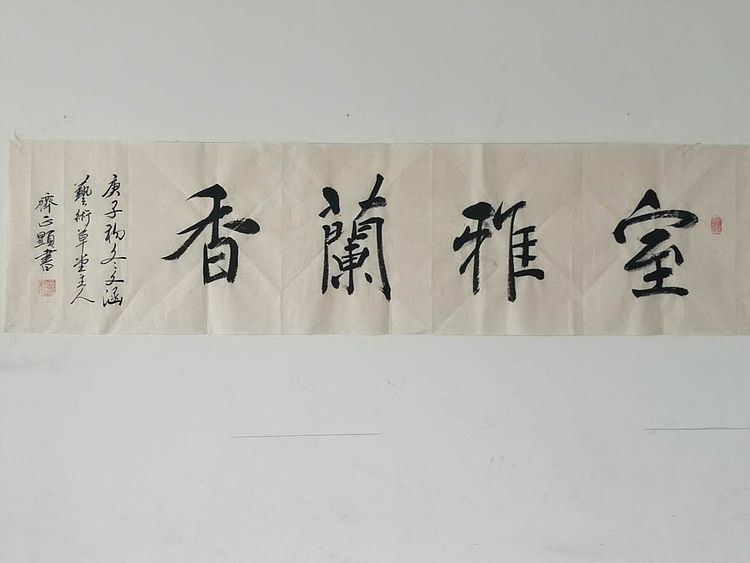 室雅蘭香
庚子初冬文涵
藝術草堂主人
齊正顯書